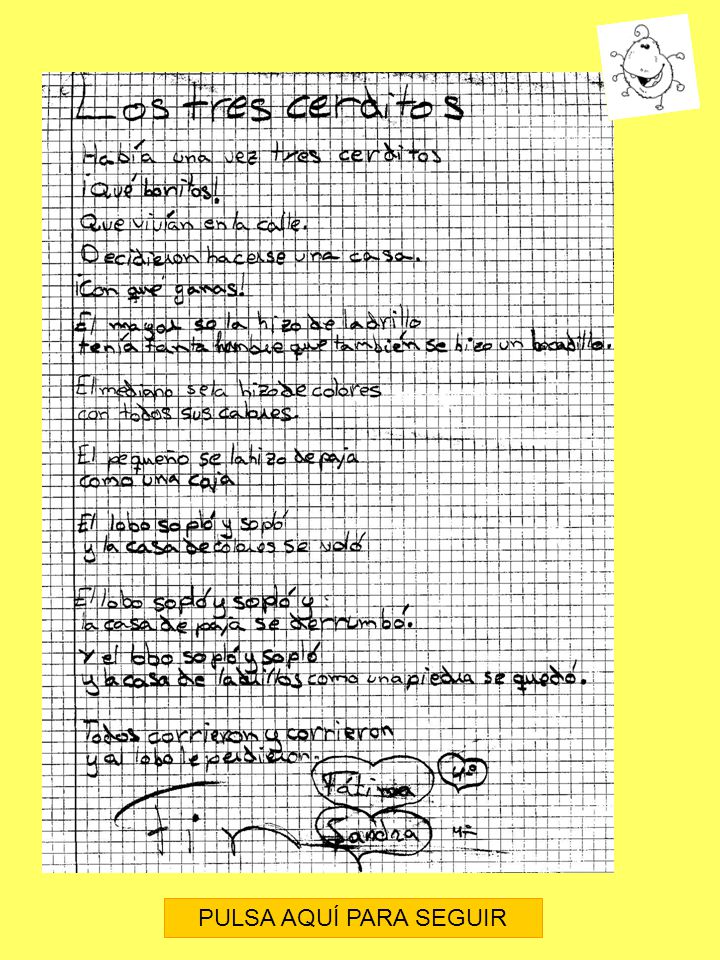 Los tres cerditos
Había una vez tres cerditos
¡Qué bonitos!
Que vivían en la calle.
Decidieron hacerse una casa.
¡Con qué ganas!
El mayor se la hizo de ladrillo
tenía tanta hambre que también se hizo un bocadillo.
El mediano se la hizo de colores
con todos sus calores.
El pequeño se la hizo de paja
como una caja
El lobo sopló y sopló
y la casa de colores se voló
El lobo sopló y sopló y
la casa de paja se derrumbó.
Y el lobo sopló y sopló
y la casa de ladrillos como una piedra se quedó.
Todos corrieron y corrieron
y al lobo le perdieron.
Fátima 4º
Fin
Sandra 4º
PULSA AQUÍ PARA SEGUIR